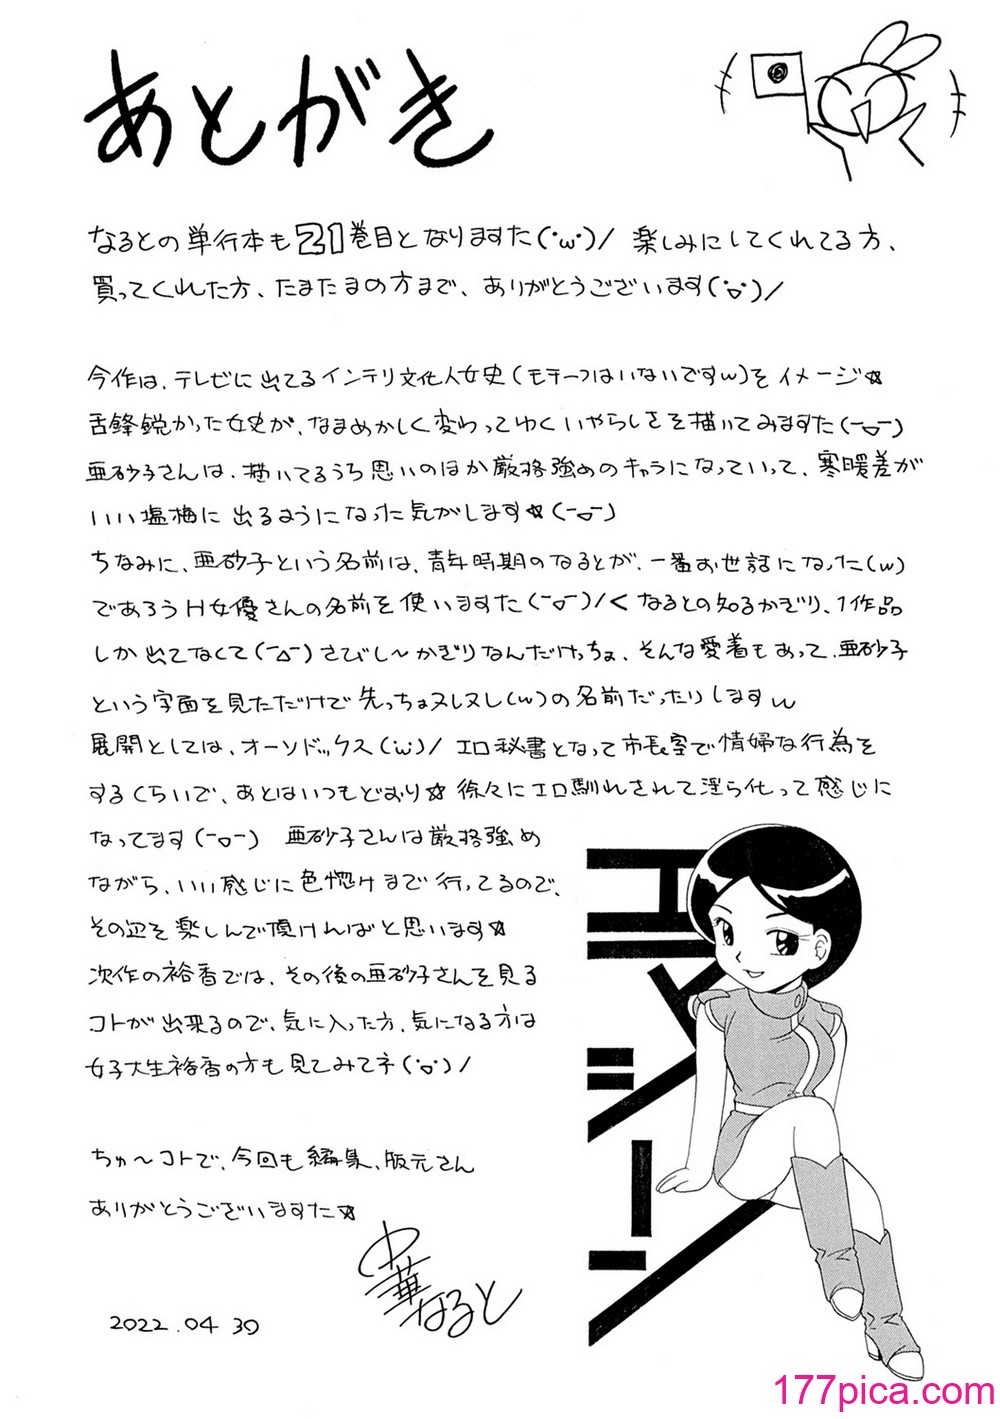 あとがき
なるとの単行本も21巻目となりますた(･ω･)/ 楽しみにしてくれてる方、
買ってくれた方、たまたまの方まで、ありがとうございます(･▽･)/
今作は、テレビに出てるインテリ文化人女史(モチーフはいないですw)をイメージ☆
舌鋒鋭かった女史が、なまめかしく変わってゆくいやらしさを描いてみますた(ー▽ー)
亜砂子さんは、描いてるうち思いのほか厳格強めのキャラになっていって、寒暖差が
いい塩梅に出るようになった気がします☆(ー▽ー)
ちなみに、亜砂子という名前は、青年時期のなるとが、一番お世話になった(w)
であろうH女優さんの名前を使いますた(ー▽ー)/< なるとの知るかぎり、1作品
しか出てなくて(ー△ー)さびし〜かぎりなんだけっちょ、そんな愛着もあって、亜砂子
という字面を見ただけで先っちょヌレヌレ(w)の名前だったりしますw
展開としては、オーソドックス(･ω･)/ エロ秘書となって市長室で情婦な行為を
するくらいで、あとはいつもどおり☆ 徐々にエロ馴れされて淫ら化って感じに
なってます(ー▽ー) 亜砂子さんは厳格強め
ながら、いい感じに色惚けまで行ってるので、
その辺を楽しんで頂ければと思います☆
次作の裕香では、その後の亜砂子さんを見る
コトが出来るので、気に入った方、気になる方は
女子大生裕香の方も見てみてネ(･▽･)/
ちゅ〜コトで、今回も編集、版元さん
ありがとうございますた☆
中華なると
2022.04 30
エマジーン
177pica.com